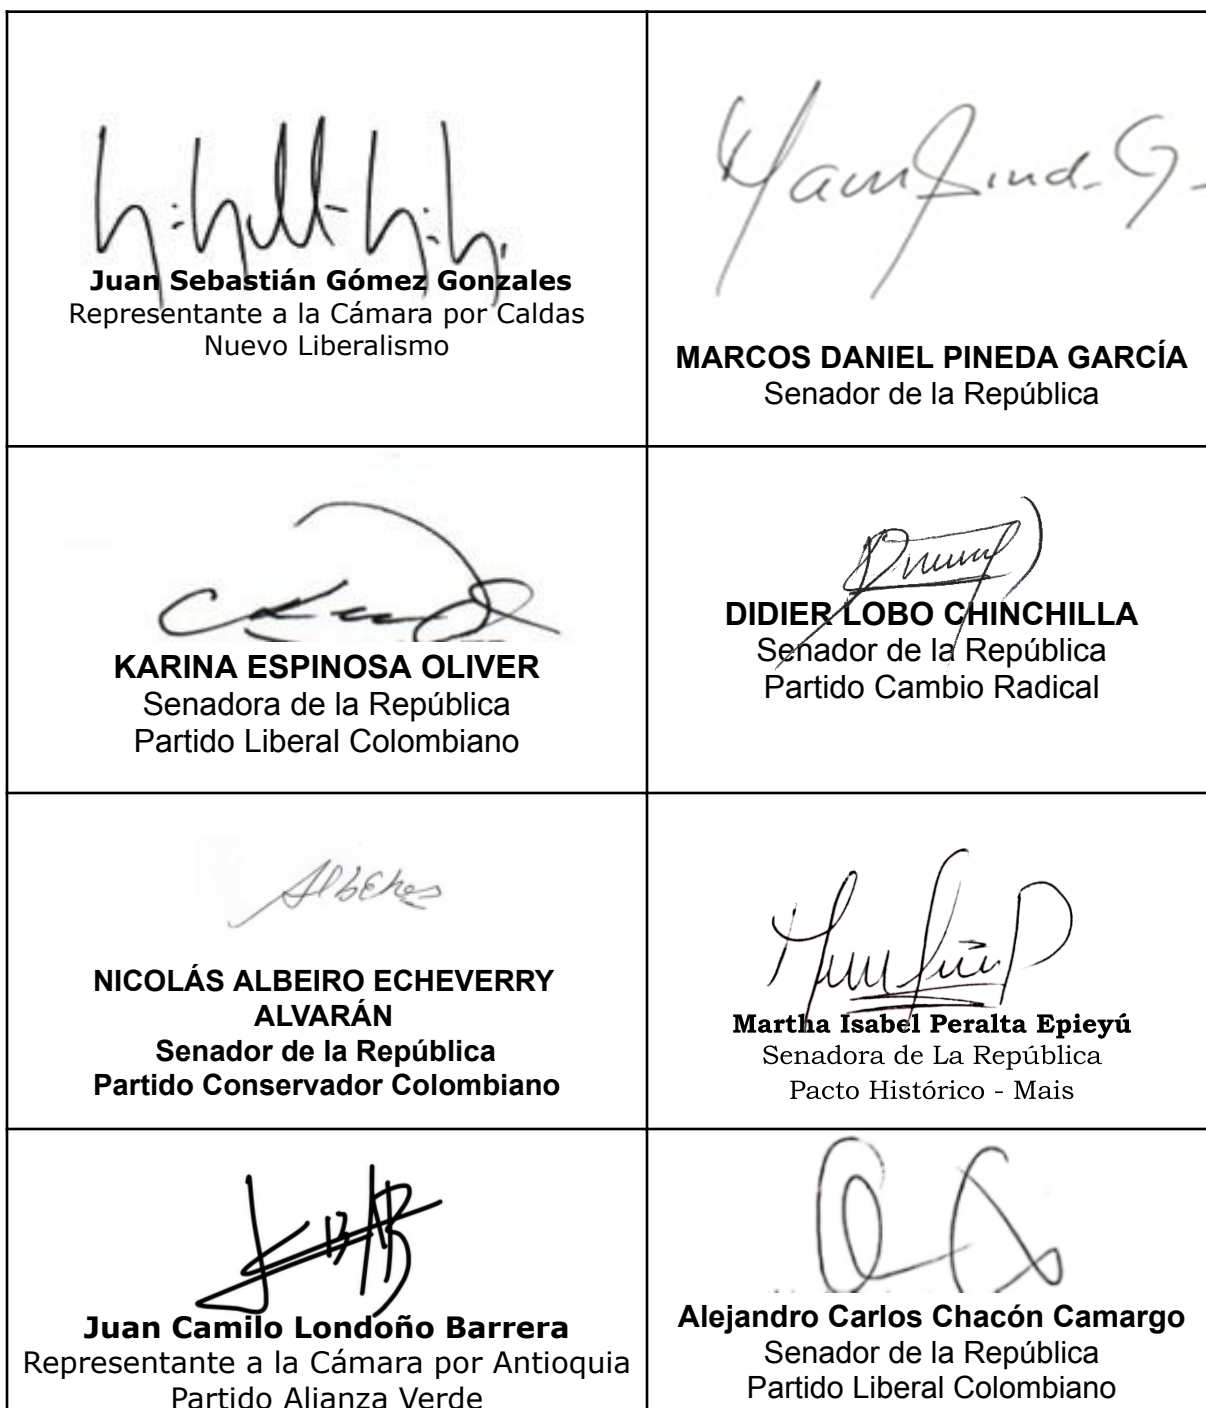 Juan Sebastián Gómez Gonzales
Representante a la Cámara por Caldas
Nuevo Liberalismo
MARCOS DANIEL PINEDA GARCÍA
Senador de la República
KARINA ESPINOSA OLIVER
Senadora de la República
Partido Liberal Colombiano
DIDIER LOBO CHINCHILLA
Senador de la República
Partido Cambio Radical
NICOLÁS ALBEIRO ECHEVERRY
ALVARÁN
Senador de la República
Partido Conservador Colombiano
Martha Isabel Peralta Epieyú
Senadora de La República
Pacto Histórico - Mais
Juan Camilo Londoño Barrera
Representante a la Cámara por Antioquia
Partido Alianza Verde
Alejandro Carlos Chacón Camargo
Senador de la República
Partido Liberal Colombiano